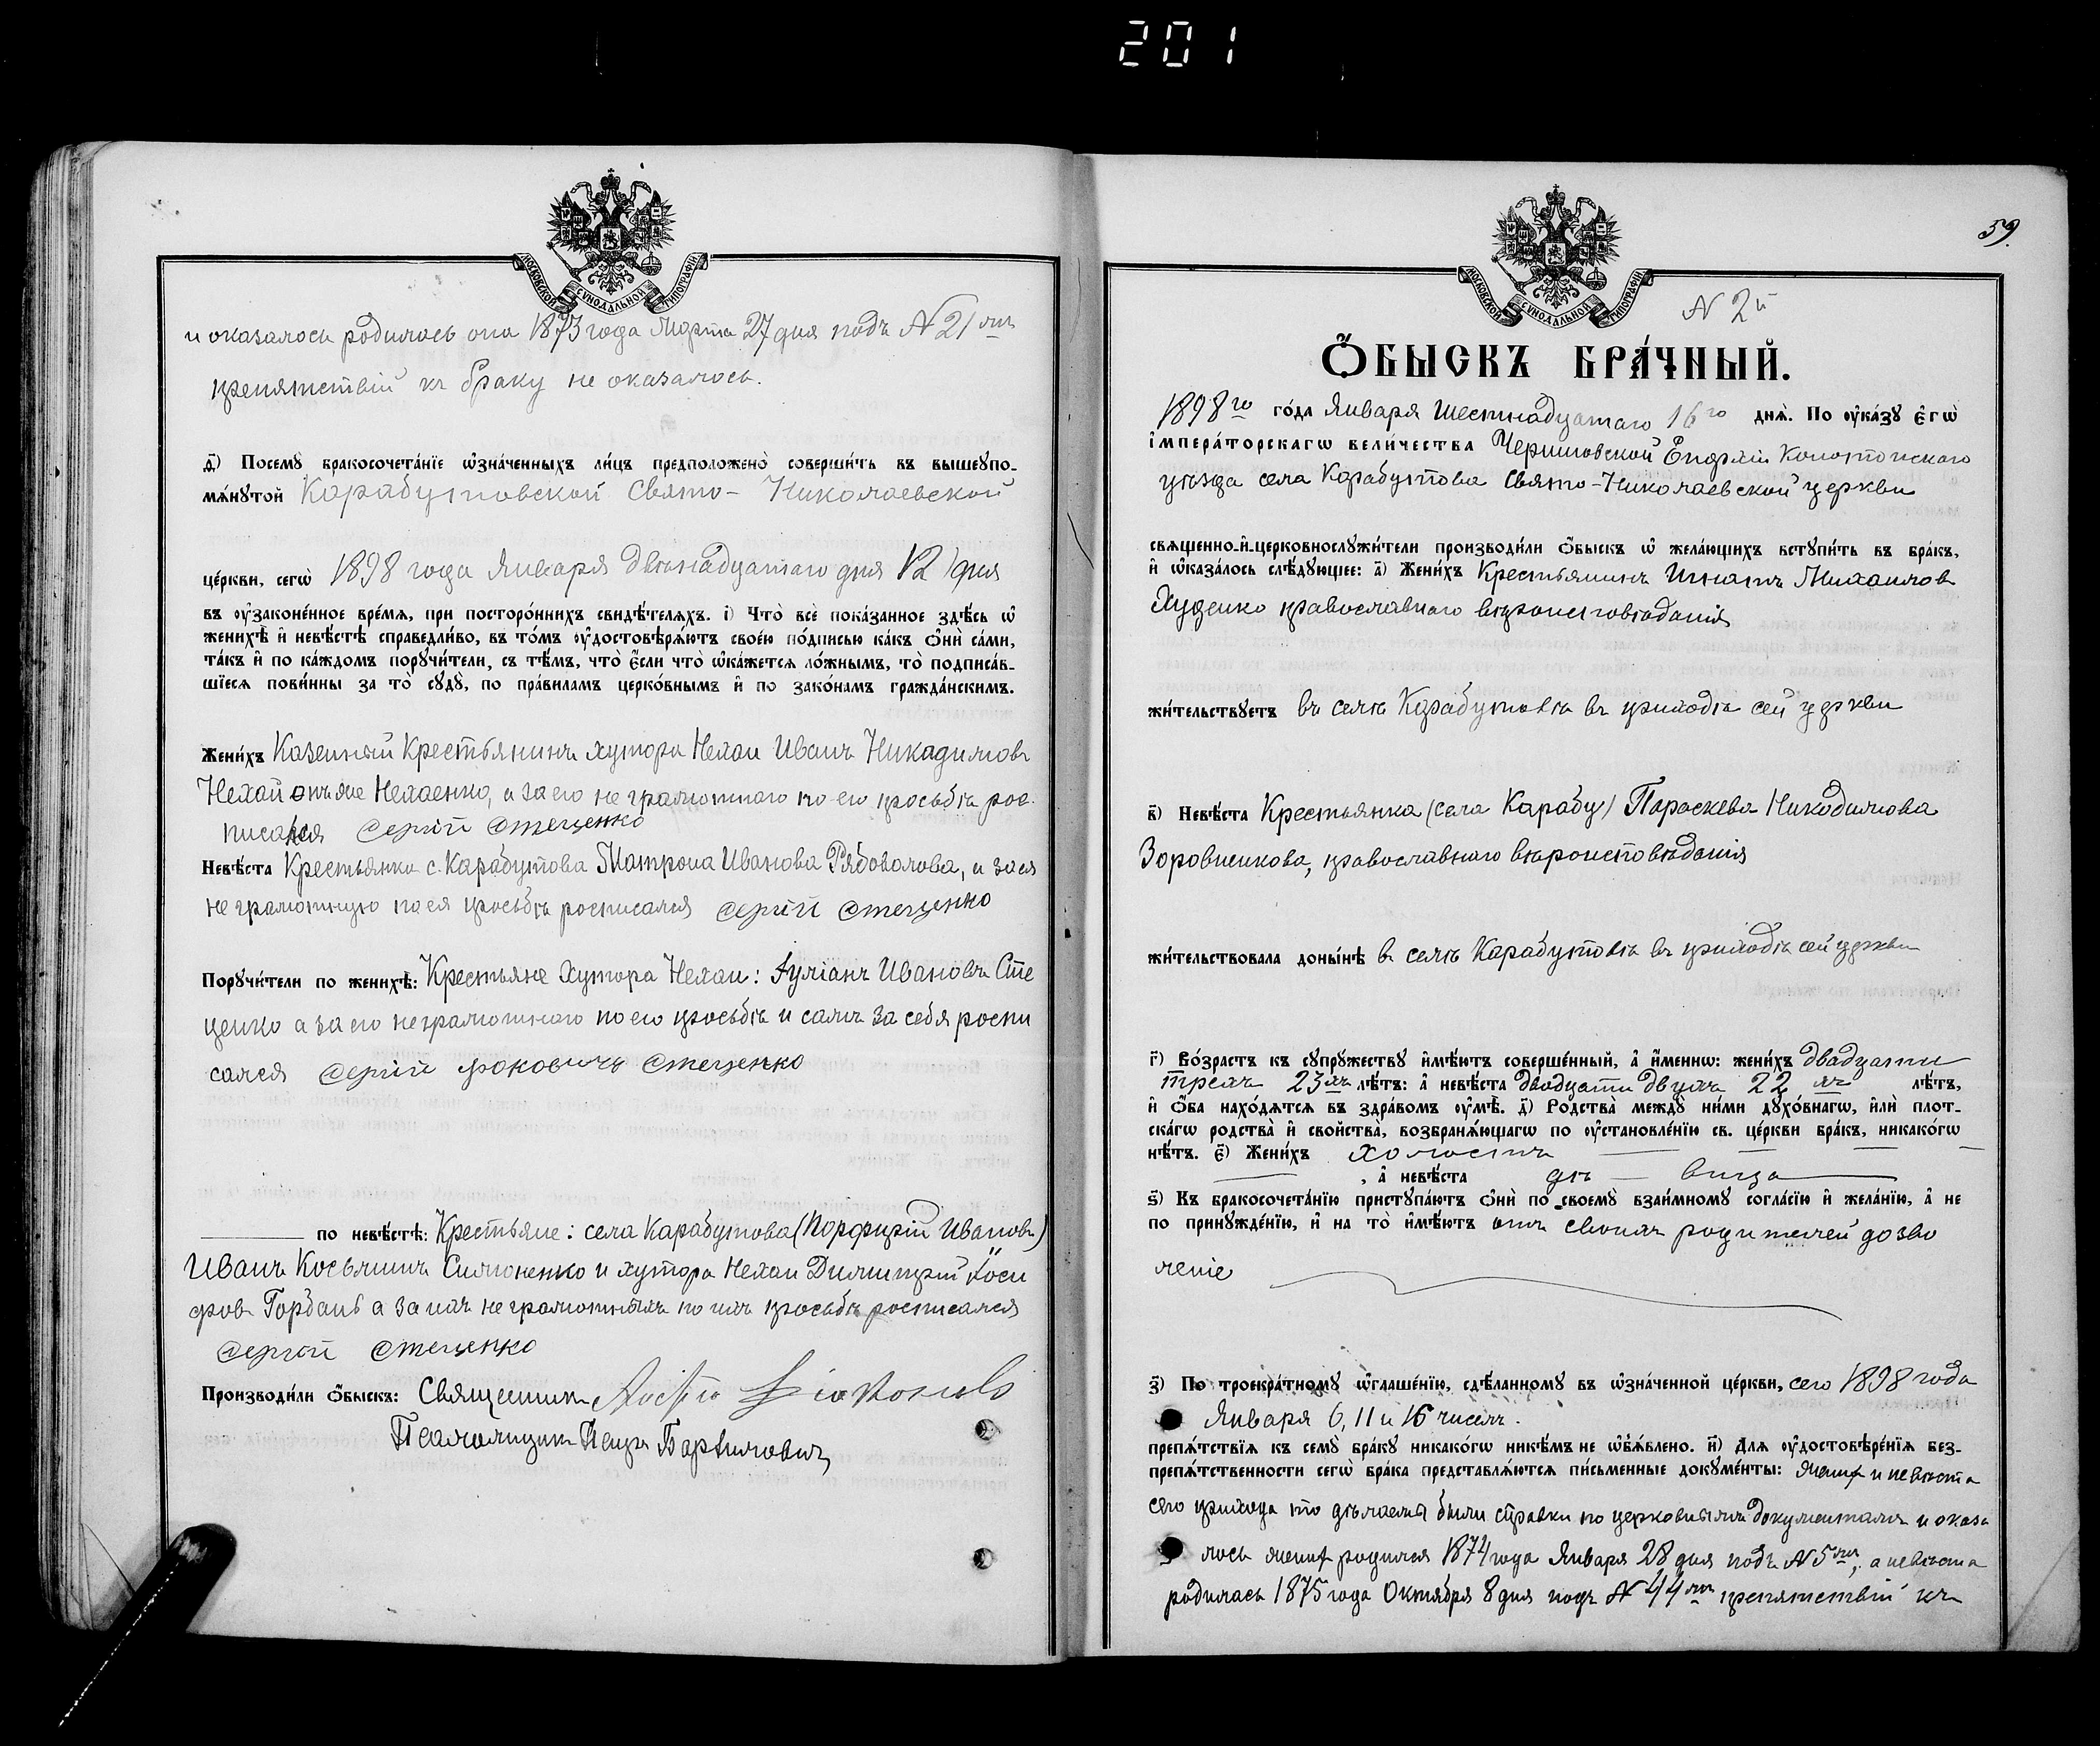 201
МОСКОВСКОЙ СѴНОДАЛЬНОЙ ТИПОГРАФІИ
и оказалось родилась она 1873 года Марта 27 дня подъ № 21мъ
препятствій къ браку не оказалось.
д҃) Посемꙋ̀ бракосочета́нїе ѡ҆зна́ченныхъ ли́цъ предположено̀ соверши́ть въ вышеꙋпо-
мѧ́нꙋтой Карабутовской Свято- Николаевской
це́ркви, сегѡ̀ 1898 года Января двѣнадцатаго дня 12 дня
въ ᲂу҆зако́ненное вре́мѧ, при посторо́ннихъ свидѣ́телѧхъ. і҃) Что̀ всѐ пока́занное здѣ́сь ѡ҆
женихѣ̀ и҆ невѣ́стѣ справедли́во, въ то́мъ ᲂу҆достовѣрѧ́ютъ свое́ю по́дписью ка́къ ѻ҆нѝ са́ми,
та́къ и҆ по ка́ждомъ порꙋчи́тели, съ тѣ́мъ, что̀ є҆́сли что̀ ѡ҆ка́жетсѧ ло́жнымъ, то̀ подписа́в-
шїесѧ пови́нны за то̀ сꙋдꙋ̀, по пра́виламъ церко́внымъ и҆ по зако́намъ гражда́нскимъ.
Жени́хъ Казенный Крестьянинъ хутора Нехаи Иванъ Никадимовъ
Нехай онъ же Нехаенко, а за его не грамотнаго по его просьбѣ рос-
писался Сергій Стеценко
Невѣ́ста Крестьянка с. Карабутова Матрона Иванова Рябовалова, а за ея
не грамотную по ея просьбѣ росписался Сергій Стеценко
Порꙋчи́тели по женихѣ̀: Крестьяне Хутора Нехаи: Іуліанъ Ивановъ Сте
ценко а за его неграмотного по его просьбѣ и самъ за себя роспи
сался Сергій Фоковичъ Стеценко
по невѣ́стѣ: Крестьяне: села Карабутова (Порфирій Ивановъ)
Иванъ Косьминъ Симоненко и хутора Нехаи Димитрій Іоси
фовъ Горбань а за ихъ не грамотныхъ по ихъ просьбѣ росписался
Сергій Стеценко
Производи́ли ѻ҆́быскъ: Священникъ
Псаломщикъ Петръ
59.
МОСКОВСКОЙ СѴНОДАЛЬНОЙ ТИПОГРАФІИ
№ 2й
Ѻ҆́БЫСКЪ БРА́ЧНЫЙ.
1898го го́да Января Шестнадцатаго 16го днѧ̀. По ᲂу҆ка́зꙋ є҆гѡ̀
і҆мпера́торскагѡ вели́чества Черниговской Епархіи Конотопскаго
уѣзда села Карабутова Свято-Николаевской церкви
свѧще́нно-и҆-церковнослꙋжи́тели производи́ли ѻ҆́быскъ ѡ҆ жела́ющихъ встꙋпи́ть въ бра́къ,
и҆ ѡ҆каза́лось слѣ́дꙋющее: а҃) Жени́хъ Крестьянинъ Игнатъ Михаиловъ
Худенко православнаго вѣроисповѣданія
жи́тельствꙋетъ въ селѣ Карабутовѣ въ приходѣ сей церкви
в҃) Невѣ́ста Крестьянка (села Карабу) Параскева Никодимова
Зоровненкова, православнаго вѣроисповѣданія
жи́тельствовала доны́нѣ въ селѣ Карабутовѣ въ приходѣ сей церкви
г҃) Во́зрастъ къ сꙋпрꙋ́жествꙋ и҆мѣ́ютъ соверше́нный, а҆ и҆́меннѡ: жени́хъ двадцати
трехъ 23хъ лѣ́тъ: а҆ невѣ́ста двадцати двухъ 22 хъ лѣ́тъ,
и҆ ѻ҆́ба нахо́дѧтсѧ въ здра́вомъ ᲂу҆мѣ̀. д҃) Родства̀ междꙋ̀ ни́ми дꙋхо́внагѡ, и҆лѝ пло́т-
скагѡ родства̀ и҆ сво́йства̀, возбранѧ́ющагѡ по ᲂу҆становле́нїю св. це́ркви бра́къ, никако́гѡ
нѣ́тъ. є҃) Жени́хъ холостъ
, а҆ невѣ́ста дѣ — вица
ѕ҃) Къ бракосочета́нїю пристꙋпа́ютъ ѻ҆нѝ по своемꙋ̀ взаи́мномꙋ согла́сїю и҆ жела́нїю, а҆ не
по принꙋжде́нїю, и҆ на то̀ и҆мѣ́ютъ отъ своихъ родителей дозво
леніе
з҃) По троекра́тномꙋ ѡ҆глаше́нїю, сдѣ́ланномꙋ въ ѡ҆зна́ченной це́ркви, сего 1898 года
Января 6, 11 и 16 чиселъ.
препѧ́тствїѧ къ семꙋ̀ бра́кꙋ никако́гѡ никѣ́мъ не ѡ҆б̾ѧ́влено. и҃) Длѧ ᲂу҆достовѣре́нїѧ без-
препѧ́тственности сегѡ̀ бра́ка представлѧ́ютсѧ пи́сьменные докꙋме́нты: жених и невѣста
сего прихода то дѣлаемы были справки по церковнымъ документамъ и оказа
лось жених родился 1874 года Января 28 дня подъ № 5мъ, а невѣста
родилась 1875 года Октября 8 дня подъ № 44мъ препятствій къ